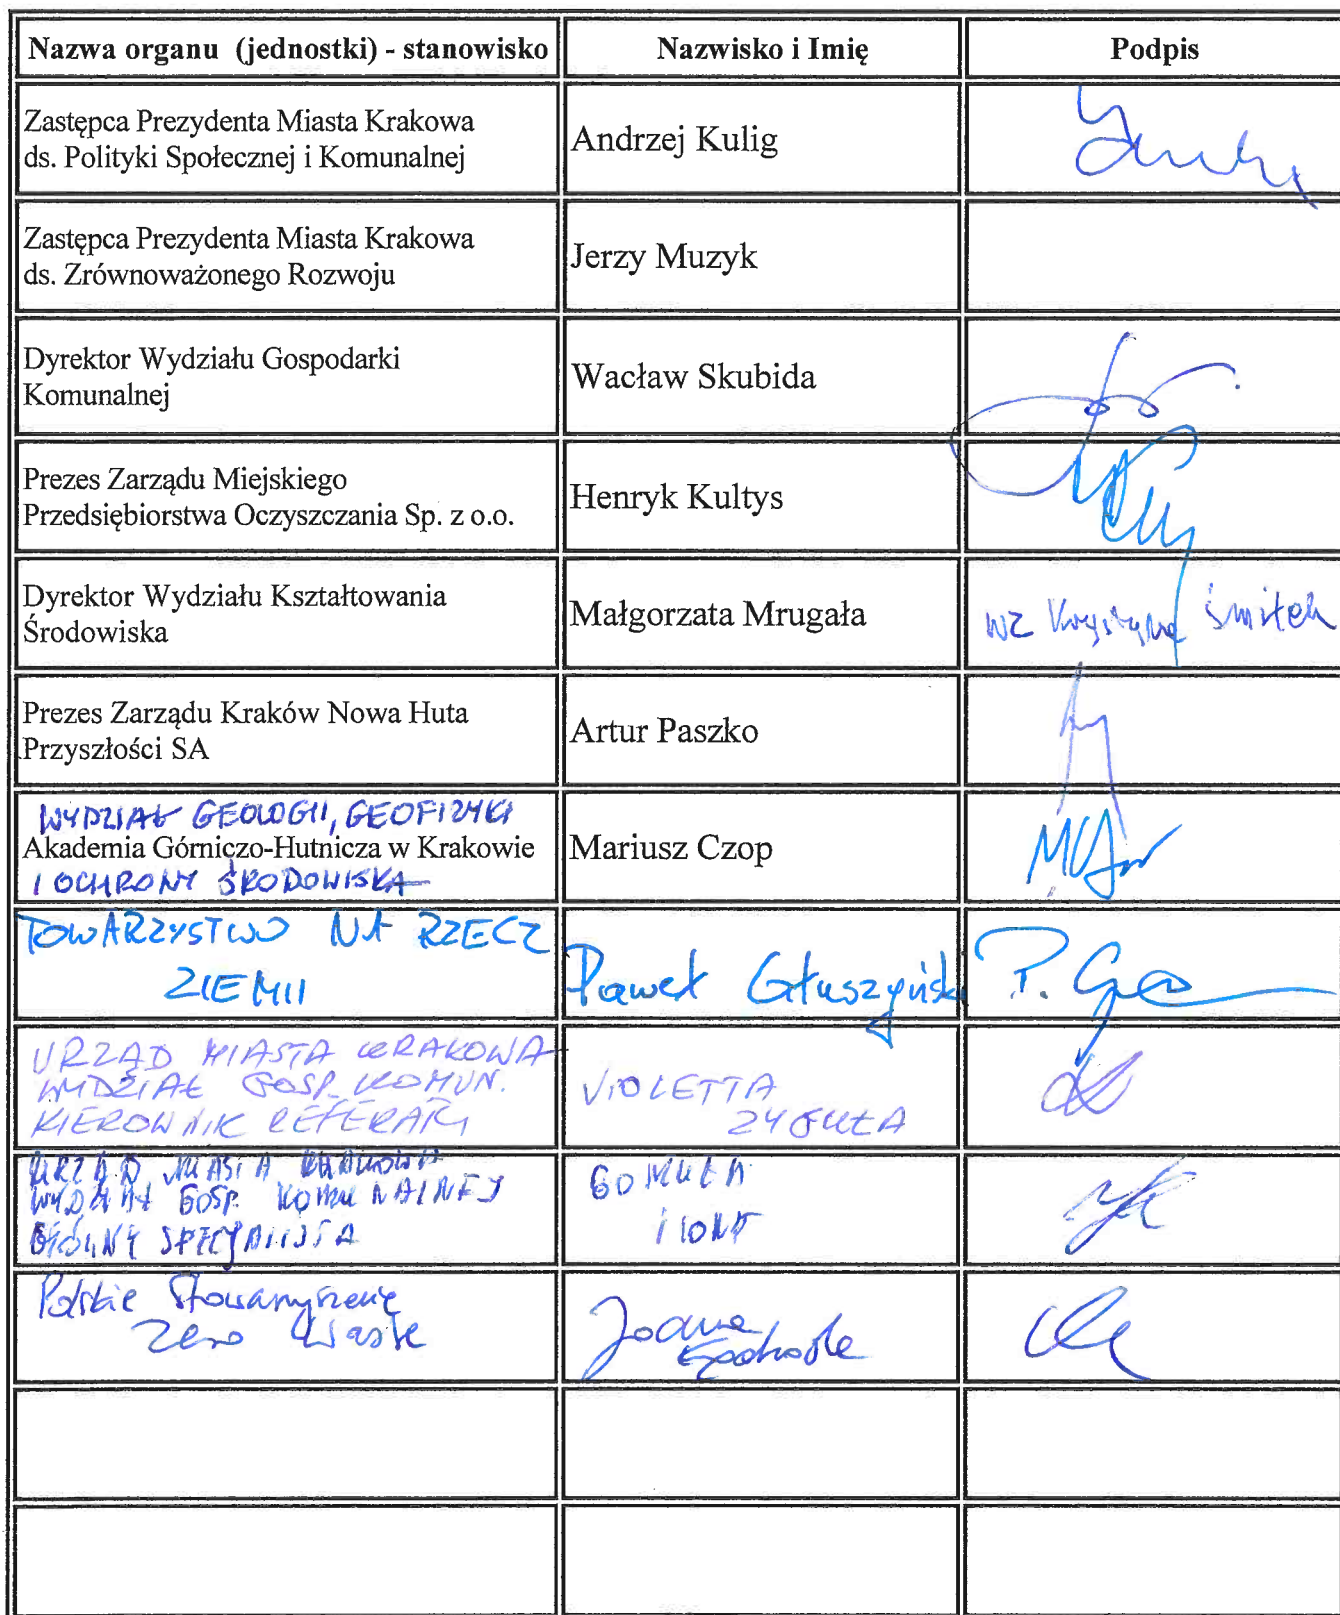 Nazwa organu (jednostki) - stanowisko
Nazwisko i Imię
Podpis
Zastępca Prezydenta Miasta Krakowa
ds. Polityki Społecznej i Komunalnej
Andrzej Kulig
Zastępca Prezydenta Miasta Krakowa
ds. Zrównoważonego Rozwoju
Jerzy Muzyk
Dyrektor Wydziału Gospodarki
Komunalnej
Wacław Skubida
Prezes Zarządu Miejskiego
Przedsiębiorstwa Oczyszczania Sp. z o.o.
Henryk Kultys
Dyrektor Wydziału Kształtowania
Środowiska
Małgorzata Mrugała
wz Krystyna Śmiłek
Prezes Zarządu Kraków Nowa Huta
Przyszłości SA
Artur Paszko
WYDZIAŁ GEOLOGII, GEOFIZYKI
Akademia Górniczo-Hutnicza w Krakowie
I OCHRONY ŚRODOWISKA
Mariusz Czop
TOWARZYSTWO NA RZECZ
ZIEMI
Paweł Głuszyński
URZĄD MIASTA KRAKOWA
WYDZIAŁ GOSP. KOMUN.
KIEROWNIK REFERATU
VIOLETTA
URZĄD MIASTA KRAKOWA
WYDZIAŁ GOSP. KOMUNALNEJ
GŁÓWNY SPECJALISTA
GOMUŁA
ILONA
Polskie Stowarzyszenie
Zero Waste
Joanna